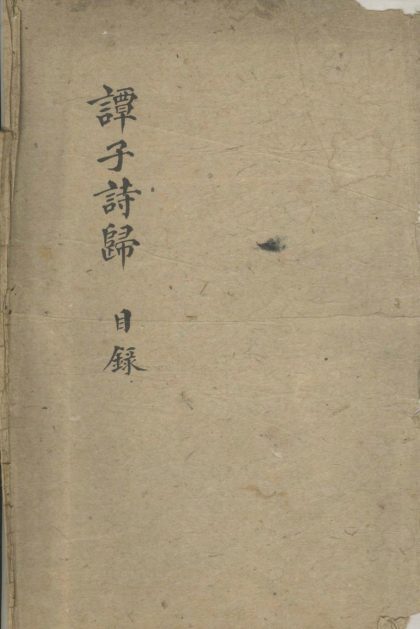 譚子詩歸 目錄